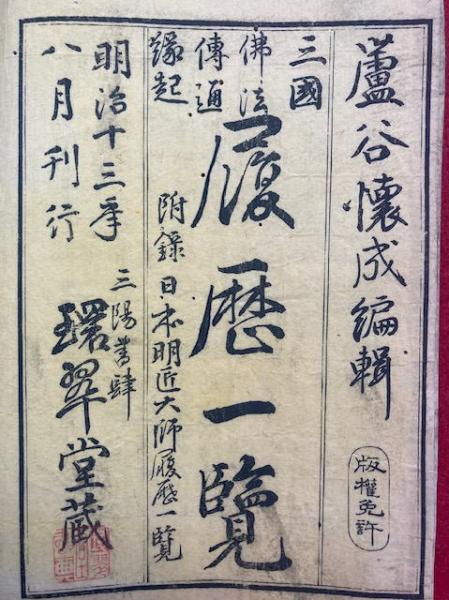 蘆谷懷成編輯
版權免許
三國
佛法
傳通
緣起
履歴一覽
附錄日本明匠大師履歴一覽
明治十三年
八月刊行
三陽書肆
環翠堂蔵